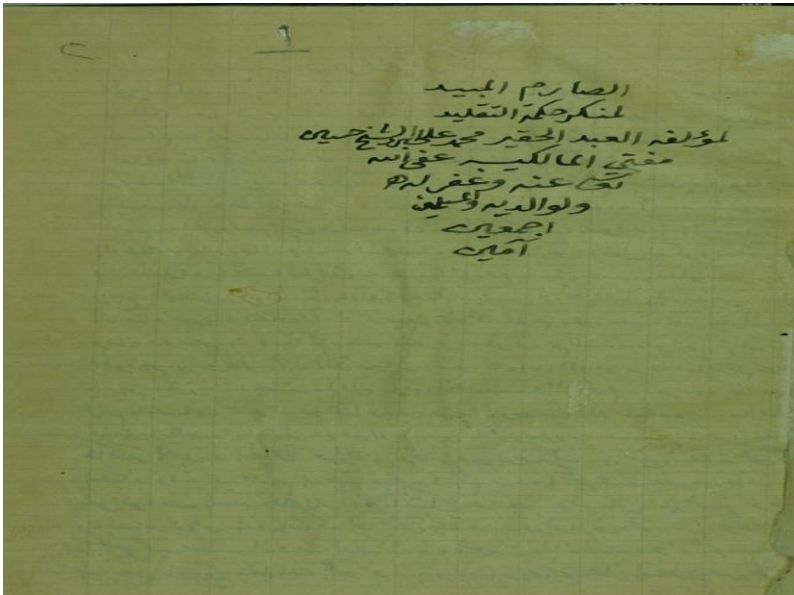 ١
الصارم المبيد
لمنكر حكمة التقليد
لمؤلفه العبد الحقير محمد علي ابن الشيخ حسين
مفتي المالكيه عفى الله
عنه وغفر له
ولوالديه والمسلمين
اجمعين
آمين